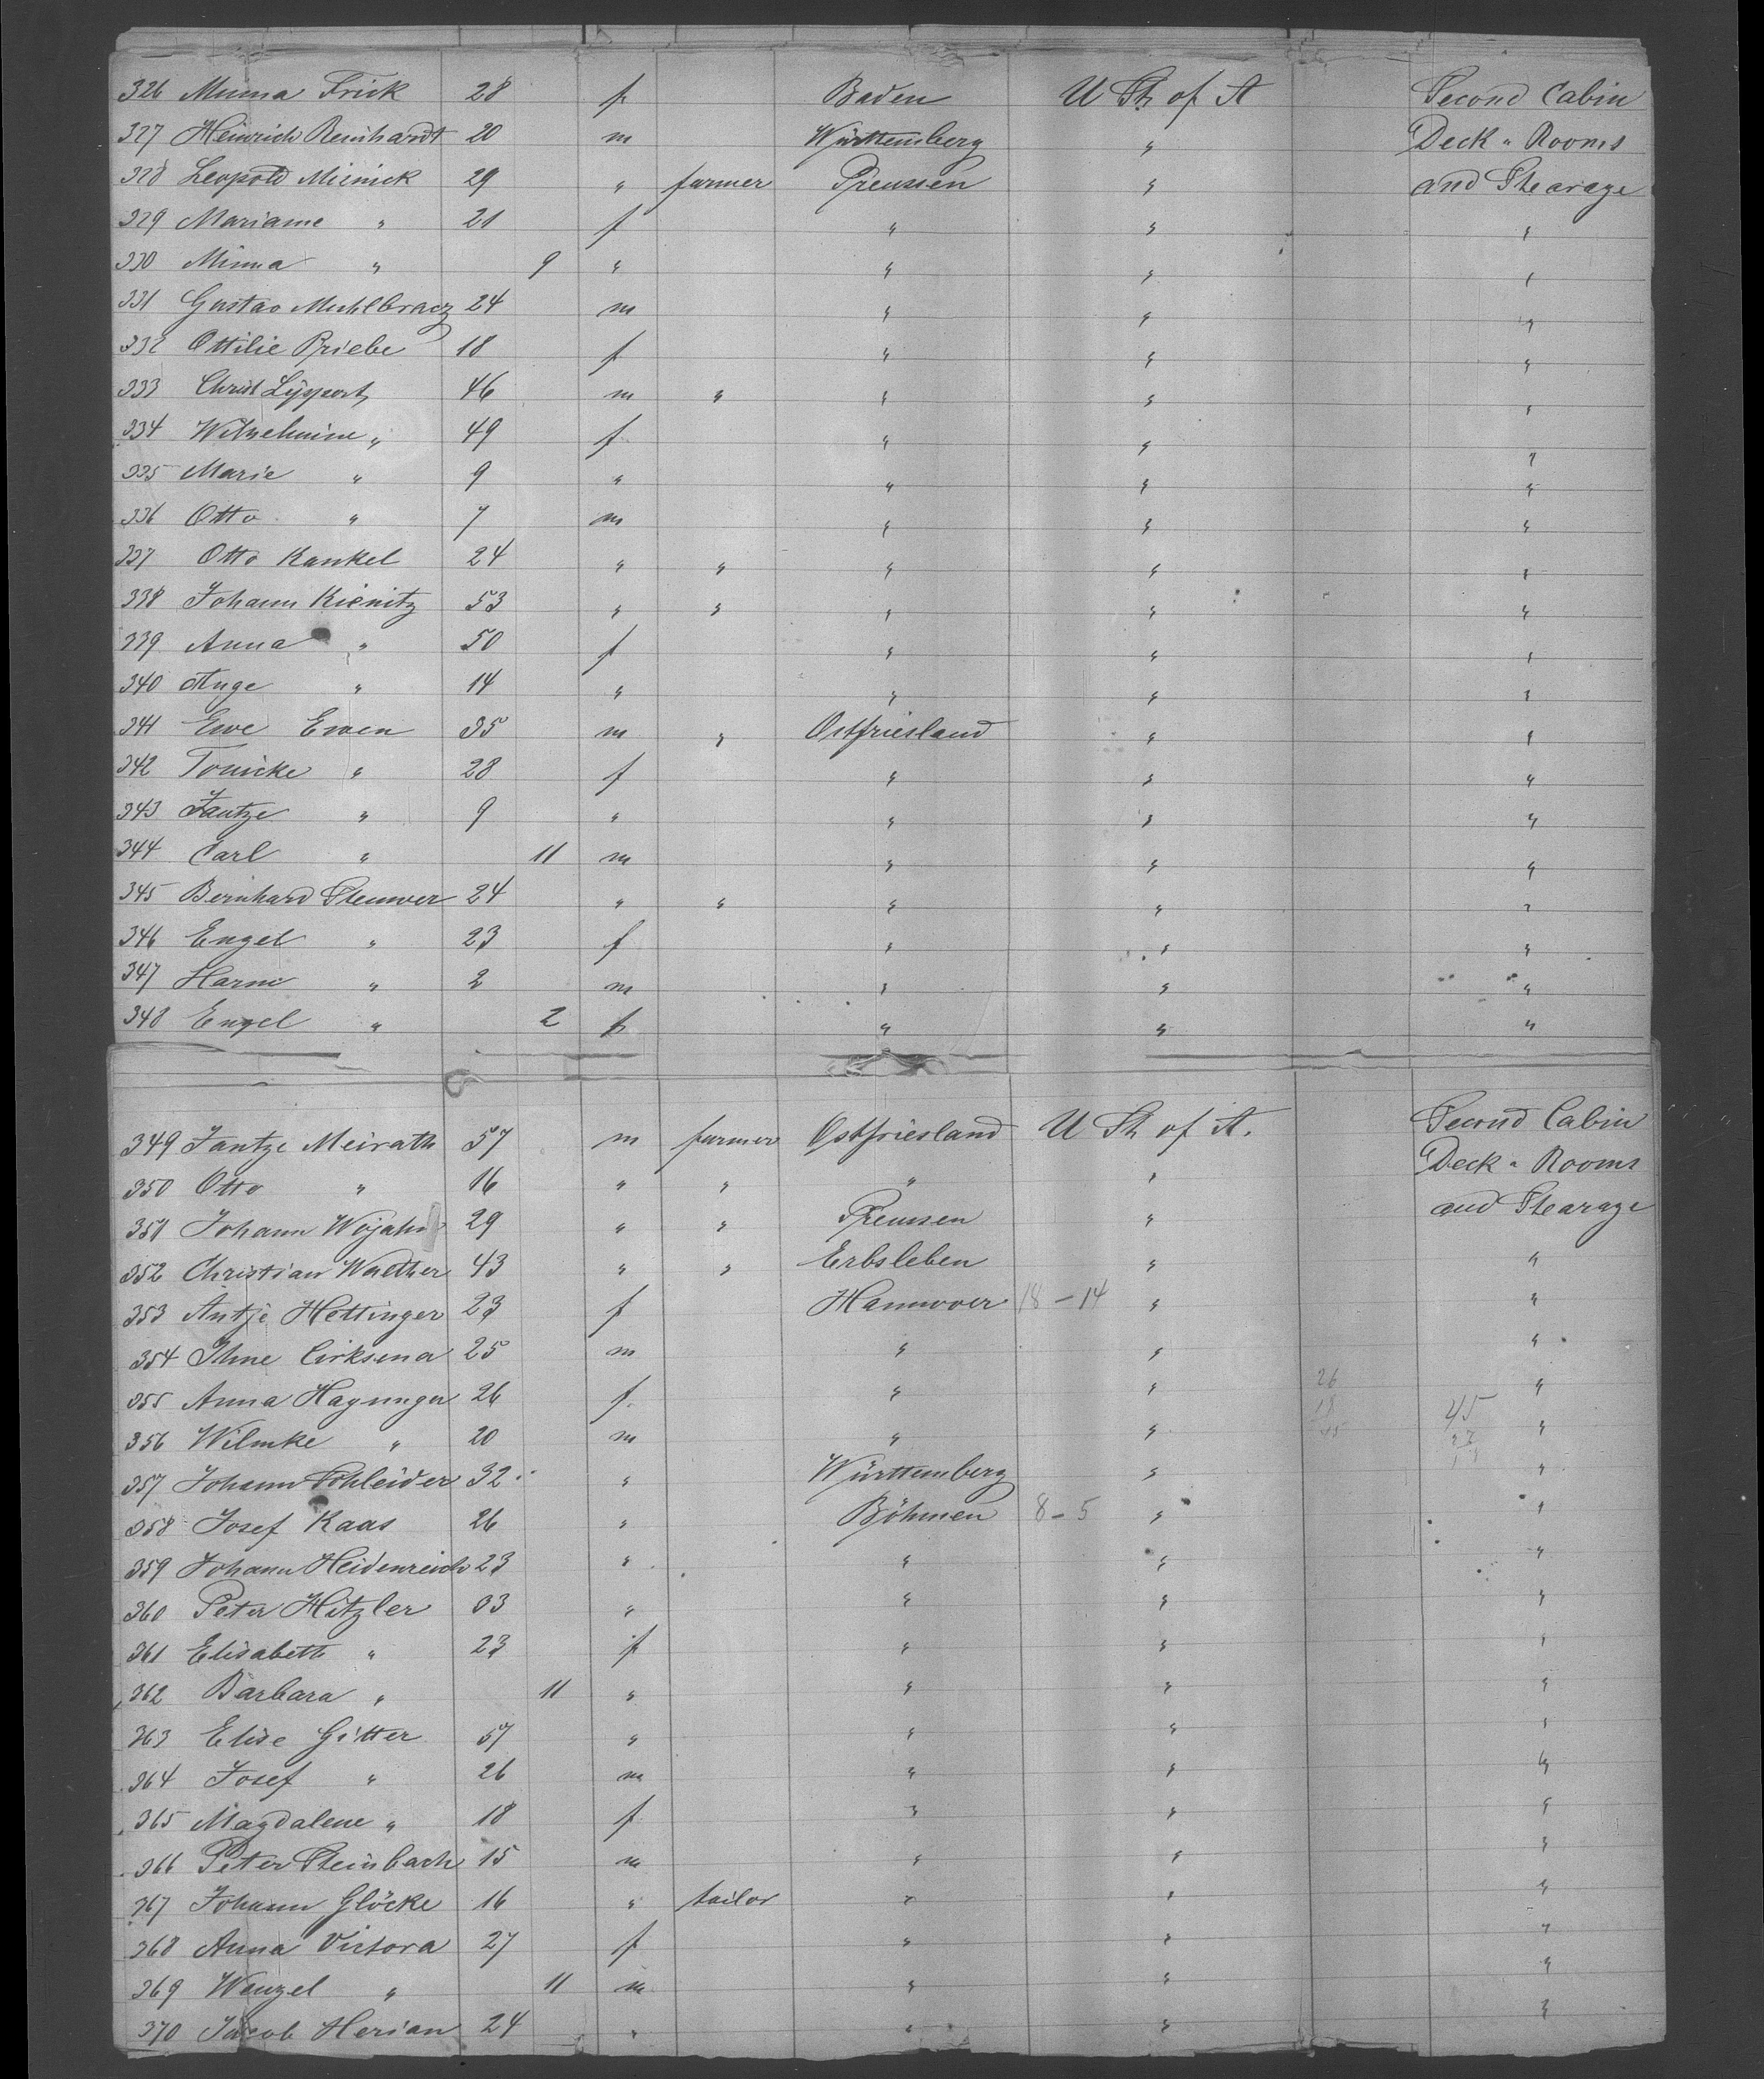 326 Minna Frick 28 f Baden U St of A Second Cabin
327 Heinrich Reinhardt 20 m Württemberg " Deck " Rooms
328 Leopold Mienick 29 " farmer Preussen " and Stearage
329 Mariane " 21 f " " "
330 Minna " 9 " " " "
331 Gustav Muhlbracz 24 m " " "
332 Ottilie Priebe 18 f " " "
333 Christ Lippert 46 m " " " "
334 Wilhelmine " 49 f " " "
335 Marie " 9 " " " "
336 Otto " 7 m " " "
337 Otto Kankel 24 " " " " "
338 Johann Kienitz 53 " " " " "
339 Anna " 50 f " " "
340 Auge " 14 " " " "
341 Ewe Ewen 35 m " Ostfriesland " "
342 Tonicke " 28 f " " "
343 Jantze " 9 " " " "
344 Carl " 11 m " " "
345 Bernhard Steuwer 24 " " " " "
346 Engel " 23 f " " "
347 Harm " 2 m " " "
348 Engel " 2 f " " "
349 Jantze Meirath 57 m farmer Ostfriesland U St of A. Second Cabin
350 Otto " 16 " " " " Deck " Rooms
351 Johann Wojahn 29 " " Preussen " and Stearage
352 Christian Walther 43 " " Erbsleben " "
353 Antje Hettinger 23 f Hannover 18-14 " "
354 Ihne Cirksena 25 m " " "
355 Anna Hayunger 26 f. " " 26 "
356 Wilmke " 20 m " " 18 45 "
357 Johann Schleider 32 " Württemberg " "
358 Josef Kaas 26 " Böhmen 8-5 " "
359 Johann Heidenreich 23 " " " "
360 Peter Hitzler 33 " " " "
361 Elisabeth " 23 f " " "
362 Barbara " 11 " " " "
363 Elise Gitter 57 " " " "
364 Josef " 26 m " " "
365 Magdalene " 18 f " " "
366 Peter Steinbach 15 m " " "
367 Johann Glöcke 16 " tailor " " "
368 Anna Victora 27 f " " "
369 Wenzel " 11 m " " "
370 Jacob Herian 24 " " " "